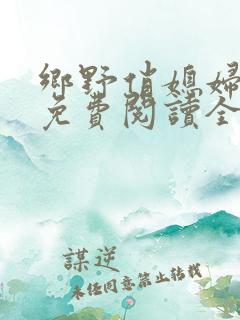 鄉野俏媳婦
免費閱讀全
謀逆
未經同意禁止轉載